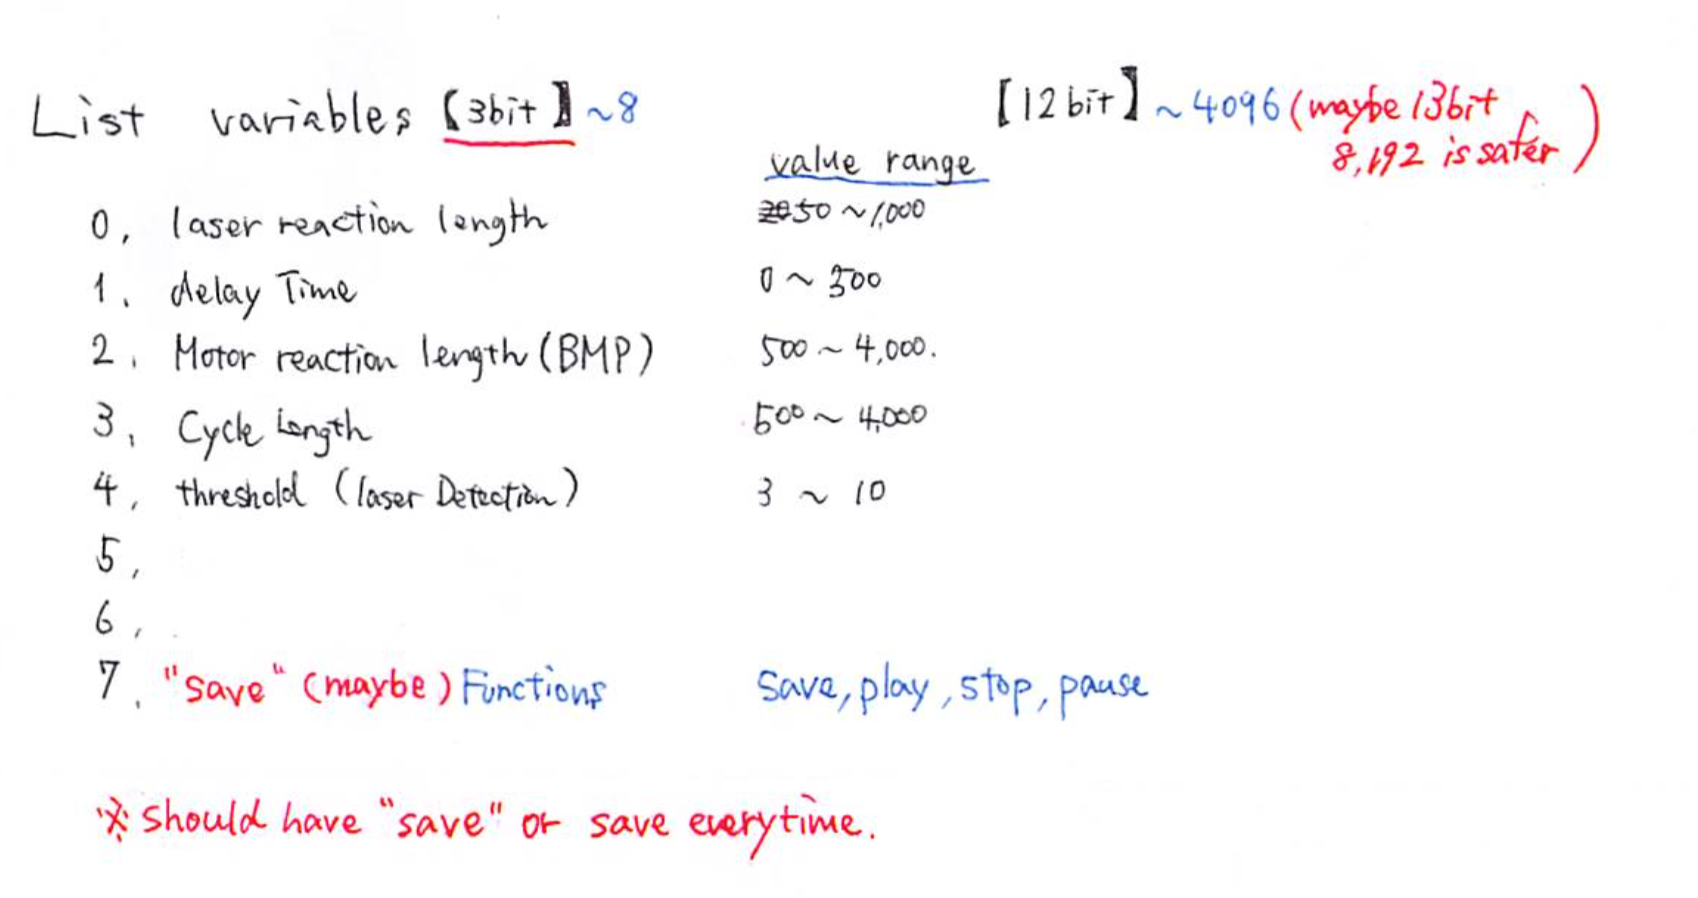 List variables 【3bit】 ~8 【12bit】 ~4096 (maybe 13bit
8,192 is safer)
value range
0, laser reaction length 50 ~ 1,000
1, delay Time 0 ~ 300
2, Motor reaction length (BMP) 500 ~ 4,000.
3, Cycle Length 500 ~ 4,000
4, threshold (laser Detection) 3 ~ 10
5,
6,
7, "save" (maybe) Functions Save, play, stop, pause
※ Should have "save" or save everytime.